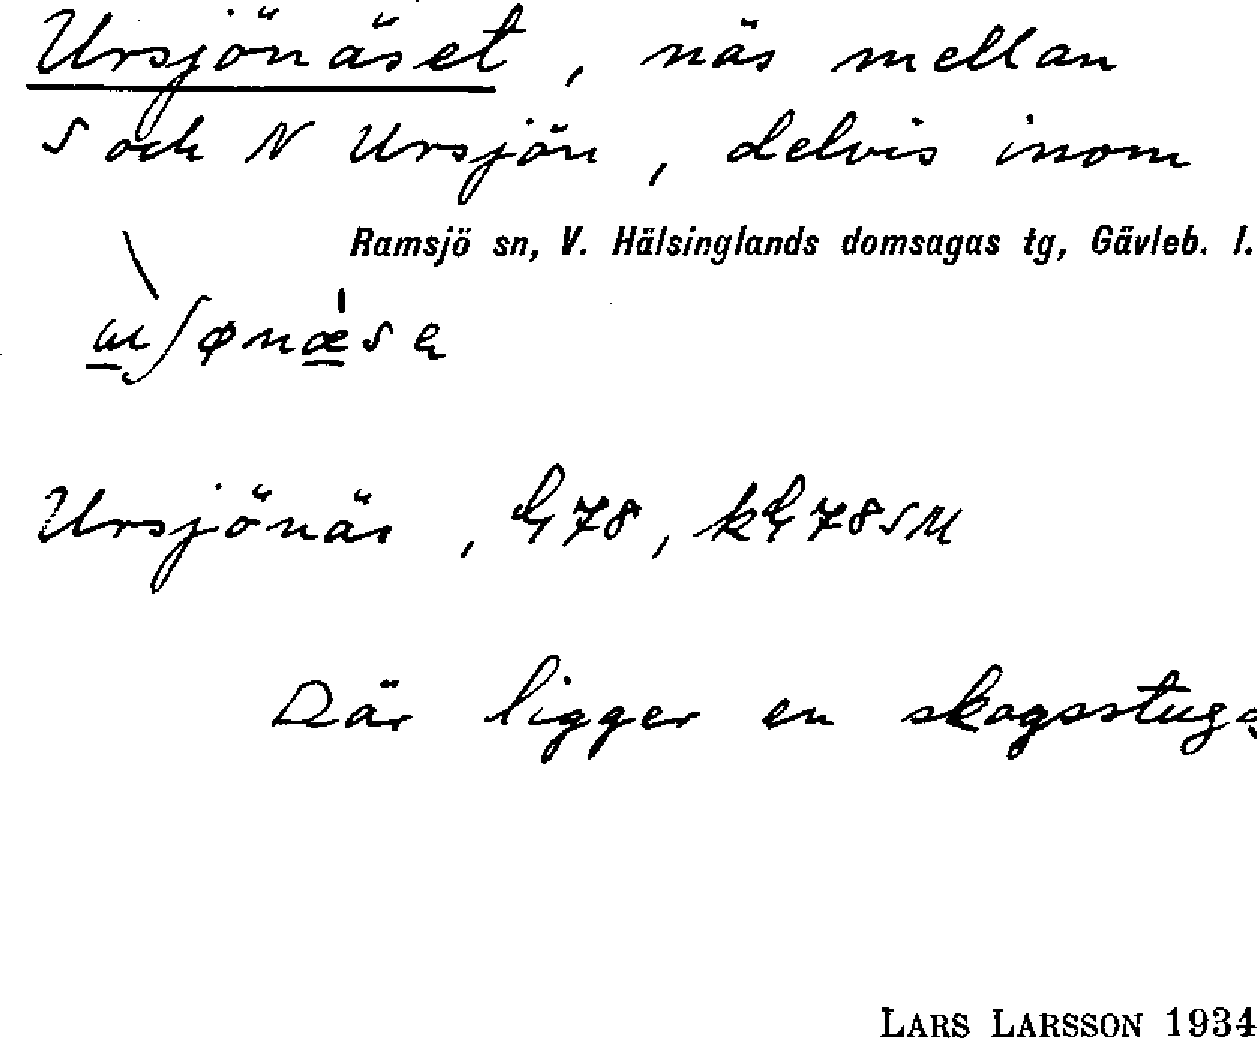 Ursjönäset, näs mellan
S och N Ursjön, delvis inom
Ramsjö sn, V. Hälsinglands domsagas tg, Gävleb. l.
Ursjönäs, 78, 78 SM
Där ligger en skogsstuga
LARS LARSSON 1934